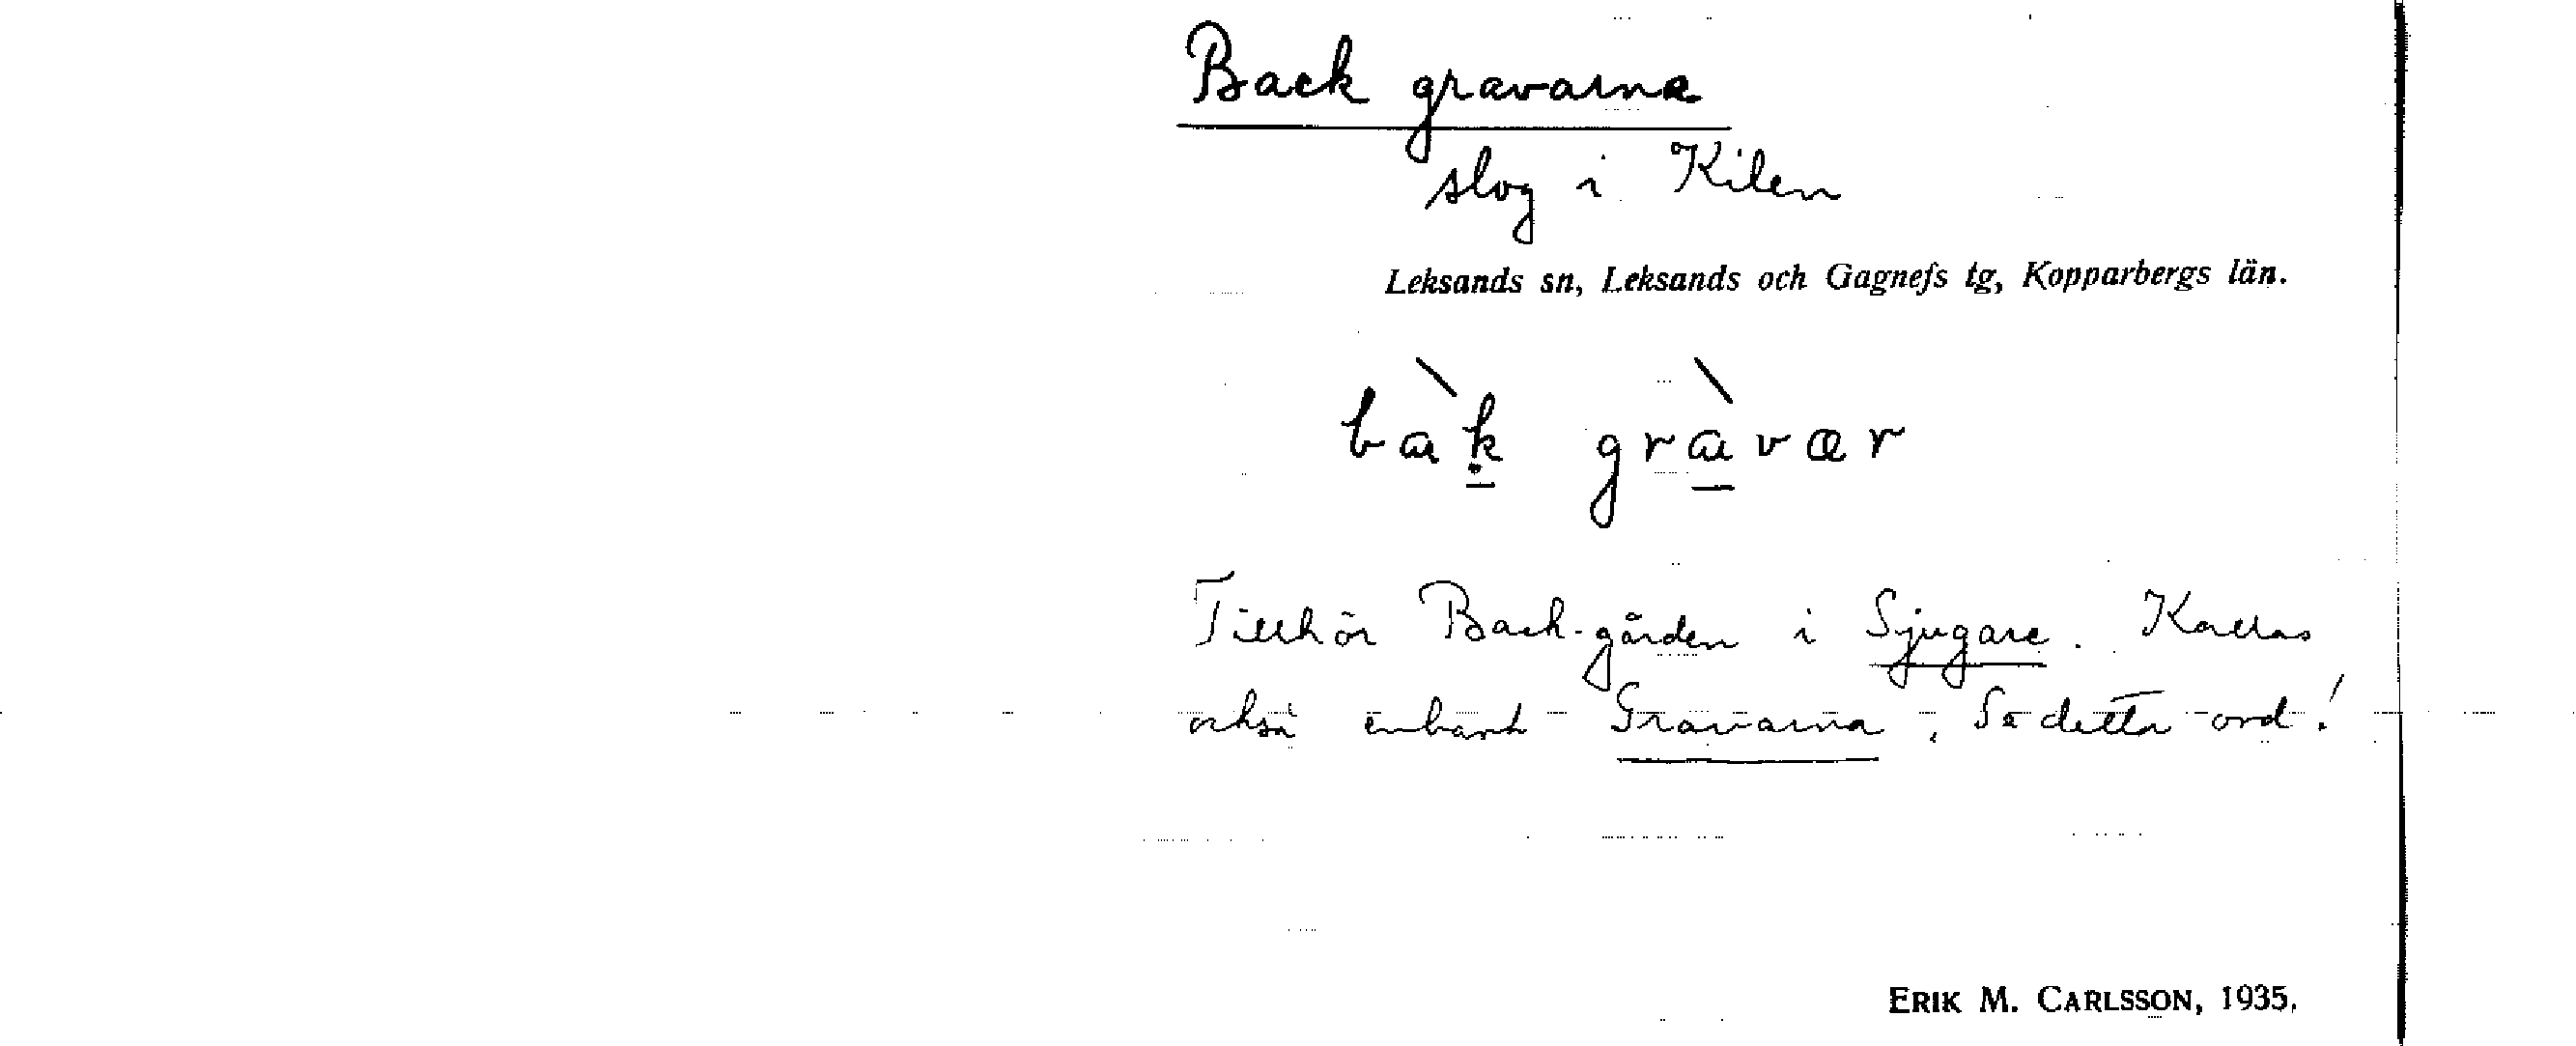 Back gravarna
slog i Kilen
Leksands sn, Leksands och Gagnefs tg, Kopparbergs län.
bàk gràvar
Tillhör Back-gården i Sjugare. Kallas
också enbart Gravarna. Se detta ord!
ERIK M. CARLSSON, 1935.